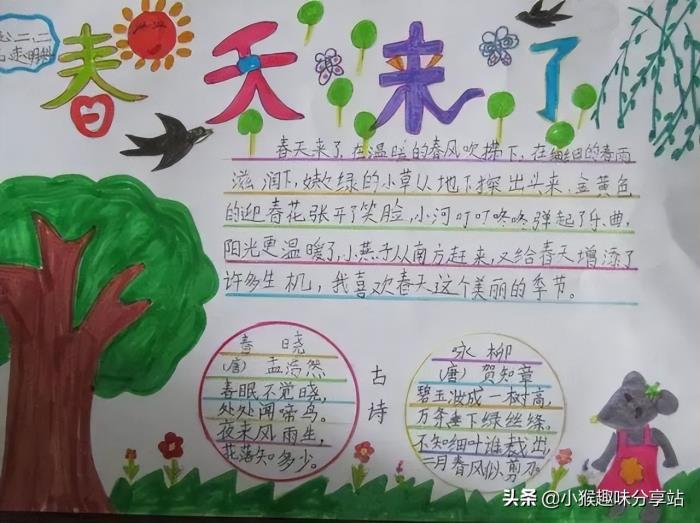 春天来了
春天来了,在温暖的春风吹拂下,在细细的春雨
滋润下,嫩绿的小草从地下探出头来,金黄色
的迎春花张开了笑脸,小河叮叮咚咚弹起了乐曲,
阳光更温暖了,小燕子从南方赶来,又给春天增添了
许多生机,我喜欢春天这个美丽的季节。
春晓
(唐)孟浩然
春眠不觉晓,
处处闻啼鸟。
夜来风雨生,
花落知多少。
古诗
咏柳
(唐)贺知章
碧玉妆成一树高,
万条垂下绿丝绦。
不知细叶谁裁出,
二月春风似剪刀
头条 @小猴趣味分享站